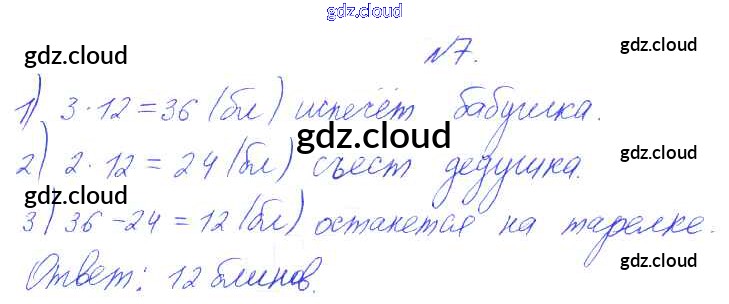 gdz.cloud
№7.
gdz.cloud gdz.cloud
1) 3·12=36 (бл) испечёт бабушка.
gdz.cloud
2) 2·12=24 (бл) съест дедушка.
gdz.cloud
gdz.cloud
3) 36-24=12 (бл) останется на тарелке.
gdz.cloud
Ответ: 12 блинов.